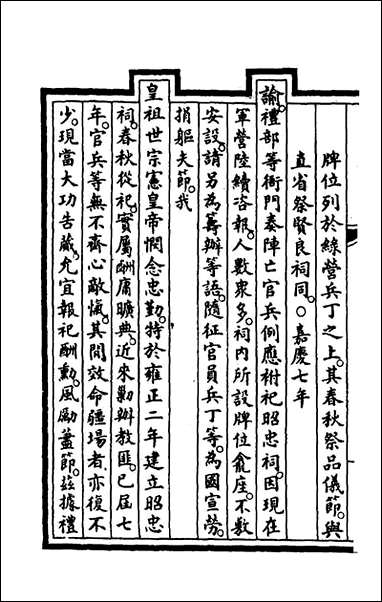 牌位列於綠營兵丁之上。其春秋祭品儀節。與
直省祭賢良祠同。○嘉慶七年
諭。禮部等衙門奏陣亡官兵例應祔祀昭忠祠。因現在
軍營陸續咨報。人數衆多。祠內所設牌位龕座。不敷
安設。請另為籌辦等語。隨征官員兵丁等。為國宣勞。
捐軀夫節。我
皇祖世宗憲皇帝憫念忠勤。特於雍正二年建立昭忠
祠。春秋從祀。實屬酬庸曠典。近來勦辦教匪。已屆七
年。官兵等無不齊心敵愾。其間效命疆場者。亦復不
少。現當大功告蕆。允宜報祀酬勳。風勵藎節。茲據禮